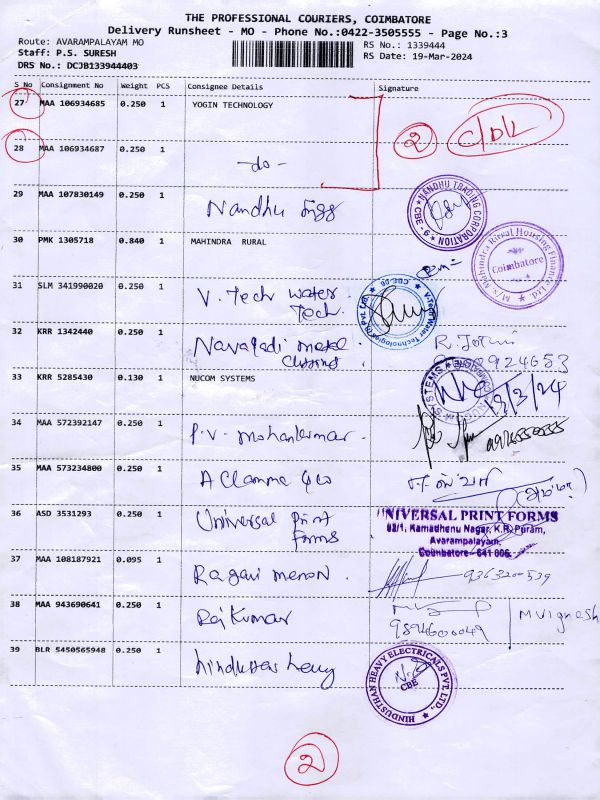 THE PROFESSIONAL COURIERS, COIMBATORE
Delivery Runsheet - MO - Phone No.:0422-3505555 - Page No.:3
Route: AVARAMPALAYAM MO
RS No.: 1339444
Staff: P.S. SURESH
RS Date: 19-Mar-2024
DRS No.: DCJB133944403
S No Consignment No Weight PCS Consignee Details Signature
27 MAA 106934685 0.250 1 YOGIN TECHNOLOGY
2
28 MAA 106934687 0.250 1 -do-
29 MAA 107830149 0.250 1 Nandhu Engg
NANDHU TRADING CORPORATION
CBE - 9
30 PMK 1305718 0.840 1 MAHINDRA RURAL
M/s. Mahindra Rural Housing Finance Ltd.
Coimbatore
31 SLM 341990020 0.250 1 V. Tech water
Tech.
V-Tech Water Technologies (I) Pvt. Ltd.
32 KRR 1342440 0.250 1
33 KRR 5285430 0.130 1 NUCOM SYSTEMS
19/3/24
34 MAA 572392147 0.250 1 P. V. Mohankumar.
35 MAA 573234800 0.250 1
36 ASD 3531293 0.250 1 Universal Print
Forms
UNIVERSAL PRINT FORMS
82/1, Kamadhenu Nagar, K.R. Puram,
Avarampalayam,
Coimbatore - 641 006.
37 MAA 108187921 0.095 1 Ragavi menon.
9363200539
38 MAA 943690641 0.250 1 Raj Kumar
M Vignesh
9894600049
39 BLR 5450565948 0.250 1
HINDUSTHAN HEAVY ELECTRICALS PVT. LTD.,
CBE
2